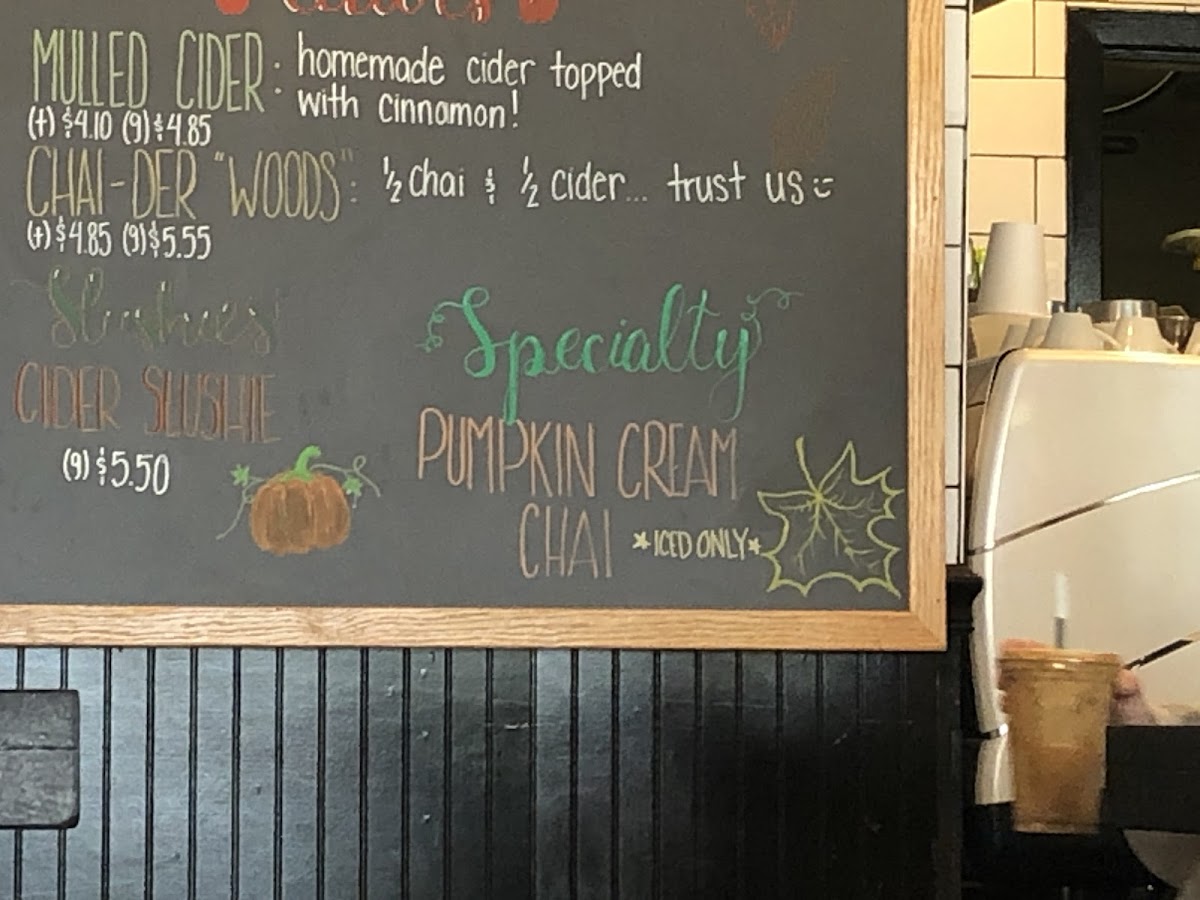 MULLED CIDER: homemade cider topped
with cinnamon!
(t) $4.10 (g) $4.85
CHAI-DER "WOODS": ½ chai & ½ cider... trust us :)
(t) $4.85 (g) $5.55
Slushies
CIDER SLUSHIE
(g) $5.50
Specialty
PUMPKIN CREAM
CHAI *ICED ONLY*